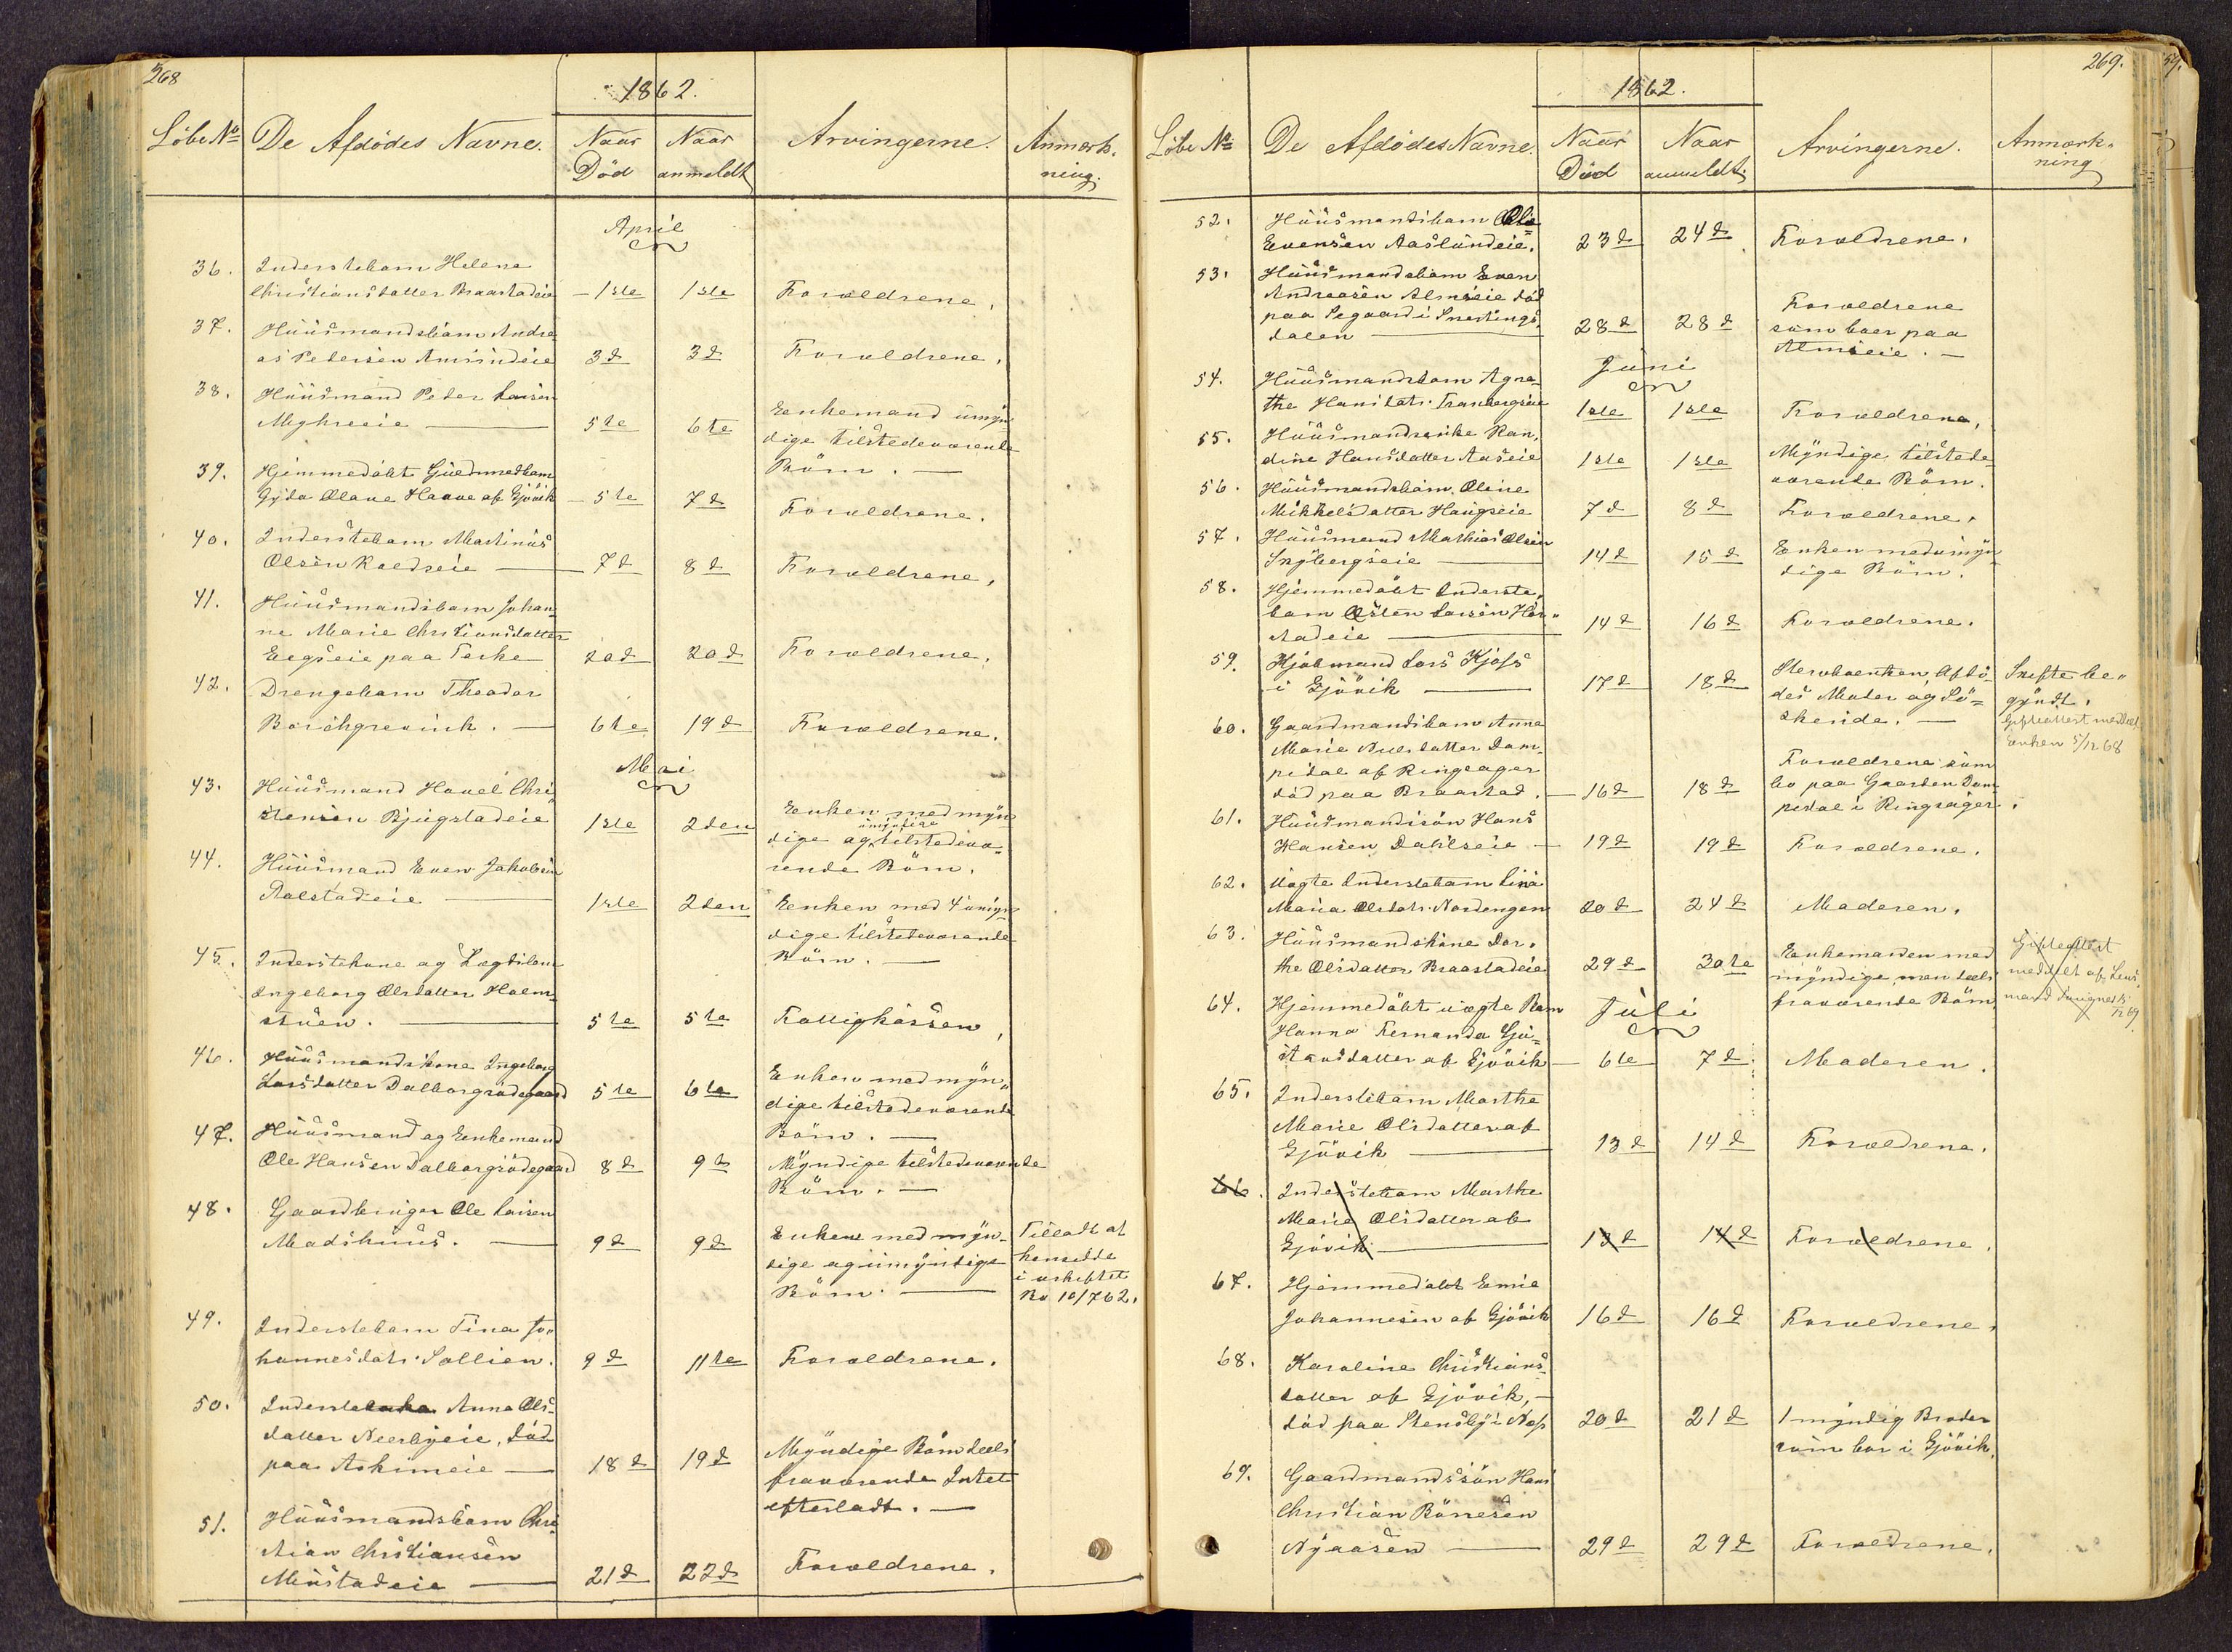 268
1862.
Löbe No De Afdödes Navne. Naar Död Naar anmeldt Arvingerne. Anmærkning.
April
36. Inderstebarn Helene
Christiansdatter Braastadeie 1ste 1ste Forældrene.
37. Huusmandsbarn Andre
as Pedersen 3d 3d Forældrene.
38. Huusmand Peder Larsen
5te 6te Enkemand umyn
dige tilstedeværende
Börn.
39. Hjemmedöbt
Gjövik 5te 7d Forældrene.
40. Inderstebarn Martinus
Olsen 7d 8d Forældrene.
41. Huusmandsbarn Johan
ne Marie Christiansdatter
Eegseie paa 20d 20d Forældrene.
42. Drengebarn Theodor
Borchgrevink. 6te 19d Forældrene.
Mai
43. Huusmand Hovel Chri
stensen Bjugstadeie 1ste 2den Enken med myn
umyndige
dige og tilstedevæ
rende Börn.
44. Huusmand Even Jakobsen
1ste 2den Enken med 4 umyn
dige tilstedeværende
Börn.
45. Inderstekone og Lægdslem
Ingeborg Olsdatter Holm
stuen. 5te 5te Fattigkassen
46. Huusmandskone Ingeborg
Larsdatter Dalborgsödegaard 5te 6te Enken med myn
dige tilstedeværende
Börn.
47. Huusmand og Enkemand
Ole Hansen Dalborgsödegaard 8d 9de Myndige tilstedeværende
Börn.
48. Gaardbruger Ole Larsen
Madshuus. 9d 9d Enken med myn
dige og umyndige
Börn.
Tilladt at
hensidde
i uskiftet
Bo 10/7 62.
49. Inderstebarn Tina Jo
hannesdatr. Sollien. 9d 11te Forældrene.
50. Inderste Anna Ols
datter Neerbyeie, död
paa 18d 19d Myndige Börn deels
fraværende Intet
efterladt.
51. Huusmandsbarn Chri
stian Christiansen
Mustadeie 21d 22d Forældrene.
269.
59.
1862.
Löbe No De Afdödes Navne. Naar Död Naar anmeldt. Arvingerne. Anmærkning
52. Huusmandsbarn Ole
Evensen Aaslundeie. 23d 24d Forældrene.
53. Huusmandsbarn Even
Andreasen Almseie död
paa Segaard i Snertings
dalen 28d 28d Forældrene
som boer paa
Almseie.
Juni
54. Huusmandsbarn Agna
the Hansdatr. Tranbergseie 1ste 1ste Forældrene.
55. Huusmandsenke Ran
dine Hansdatter Aaseie 1ste 1ste Myndige tilstede
værende Börn.
56. Huusmandsbarn Oline
Mikkelsdatter Haugseie 7d 8d Forældrene.
57. Huusmand Mathias Olsen
Snybergseie 14d 15d Enken med umyn
dige Börn.
58. Hjemmedöbt Inderste
barn Østen Larsen
14d 16d Forældrene.
59. Lars Kjøss
i Gjövik 17d 18d Sterboenken, Afdö
des Moder og Sö
skende.
Skifte be
gyndt.
Gifteattest meddelt
Enken 5/12 68
60. Gaardmandsbarn Anne
Marie datter Dom
pidal af Ringsager
död paa Braastad. 16d 18d Forældrene som
bo paa Gaarden Dom
pidal i Ringsager.
61. Huusmandssön Hans
Hansen Dahlseie 19d 19d Forældrene.
62. Uægte Inderstebarn Lina
Maria Olsdatr. Nordengen 20d 24d Moderen.
63. Huusmandskone Dor
the Olsdatter Braastadeie 29d 30te Enkemanden med
myndige, men deels
fraværende Börn.
Gifteattest
meddelt af Lens
mand
Juli
64. Hjemmedöbt uægte Barn
Hanna Fernanda Gu
stavsdatter af Gjövik 6te 7d Moderen.
65. Inderstebarn Marthe
Marie Olsdatter af
Gjövik 13d 14d Forældrene.
66. Inderstebarn Marthe
Marie Olsdatter af
Gjövik 13d 14d Forældrene.
67. Hjemmedöbt Emil
Johannesen af Gjövik 16d 16d Forældrene.
68. Karoline Christians
datter af Gjövik,
död paa Stensby i Næs 20d 21d 1 myndig Broder
som bor i Gjövik.
69. Gaardmandssön Hans
Christian Börresen
Nyaasen 29d 29d Forældrene.